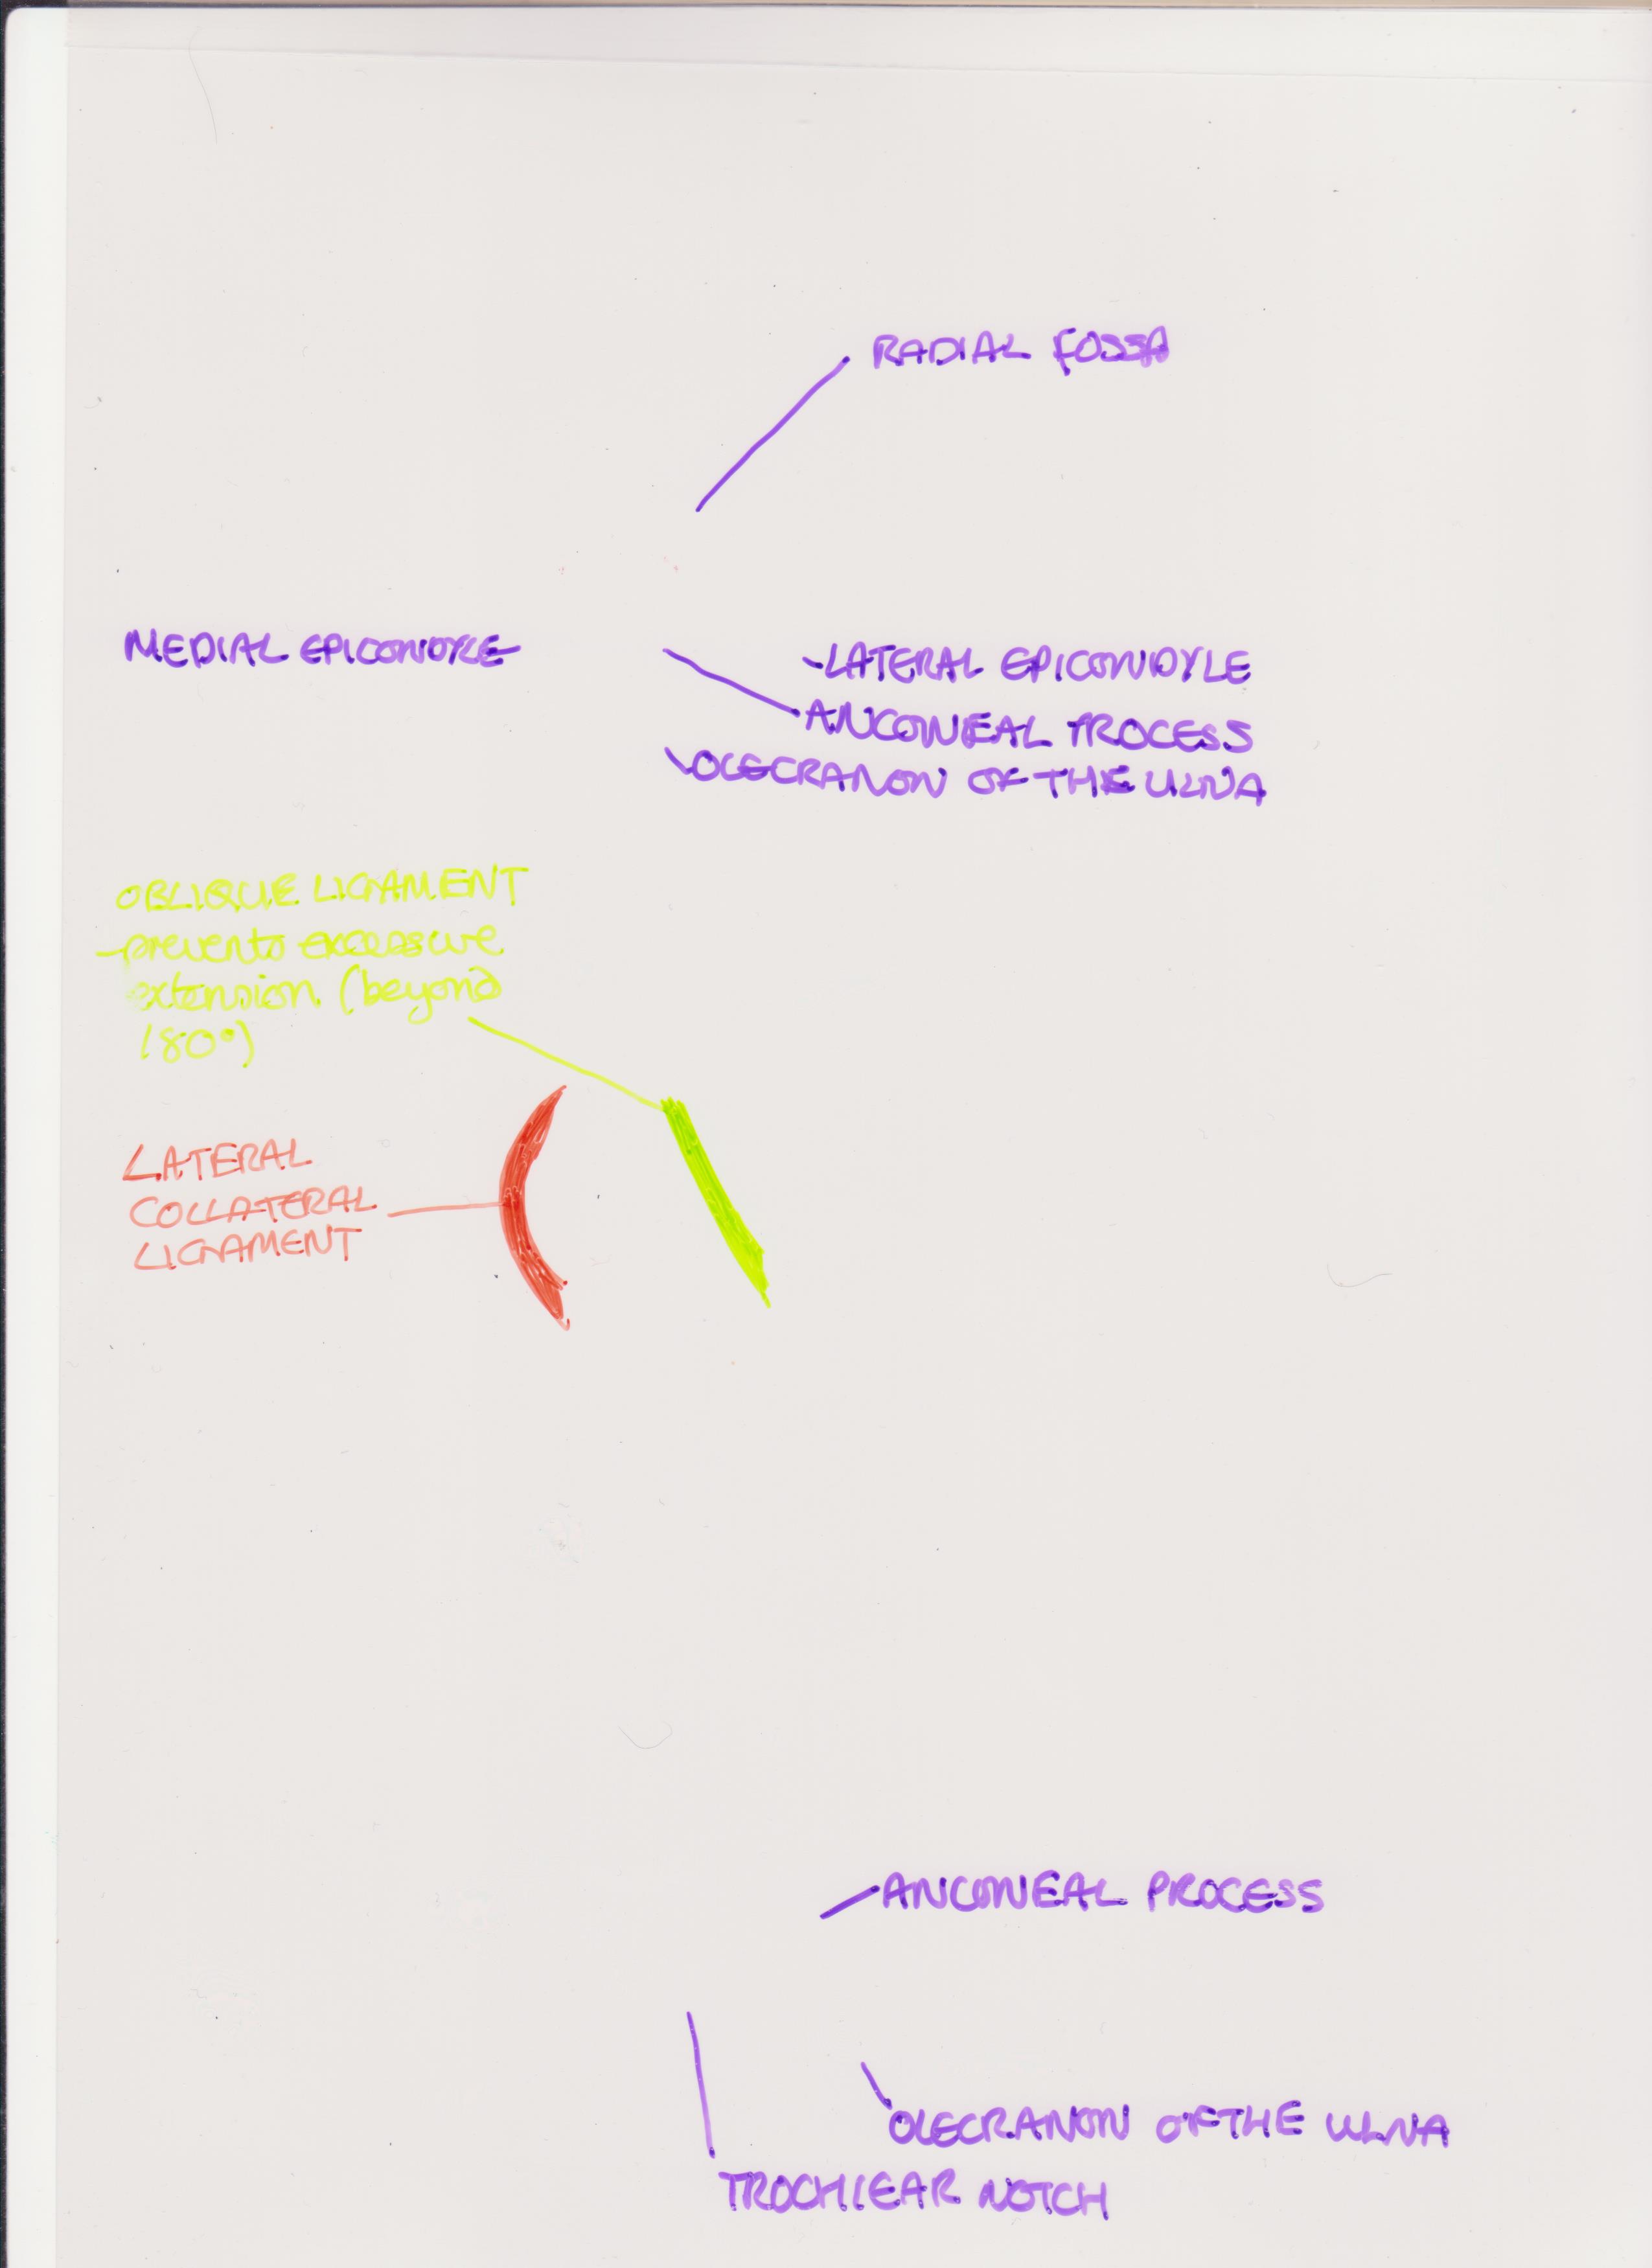 RADIAL FOSSA
MEDIAL EPICONDYLE
LATERAL EPICONDYLE
ANCONEAL PROCESS
OLECRANON OF THE ULNA
OBLIQUE LIGAMENT
-prevents excessive
extension (beyond
180°)
LATERAL
COLLATERAL
LIGAMENT
ANCONEAL PROCESS
OLECRANON OF THE ULNA
TROCHLEAR NOTCH